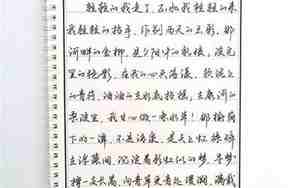 轻轻的我走了,正如我轻轻的来
我轻轻的招手,作别西天的云彩,那
河畔的金柳,是夕阳中的新娘,波光
里的艳影,在我的心头荡漾,软泥上
的青荇,油油的在水底招摇,在康河的
柔波里,我甘心做一条水草!那榆荫
下的一潭,不是清泉,是天上虹,揉碎
在浮藻间,沉淀着彩虹似的梦,寻梦?
撑一支长篙,向青草更青处漫溯,满载